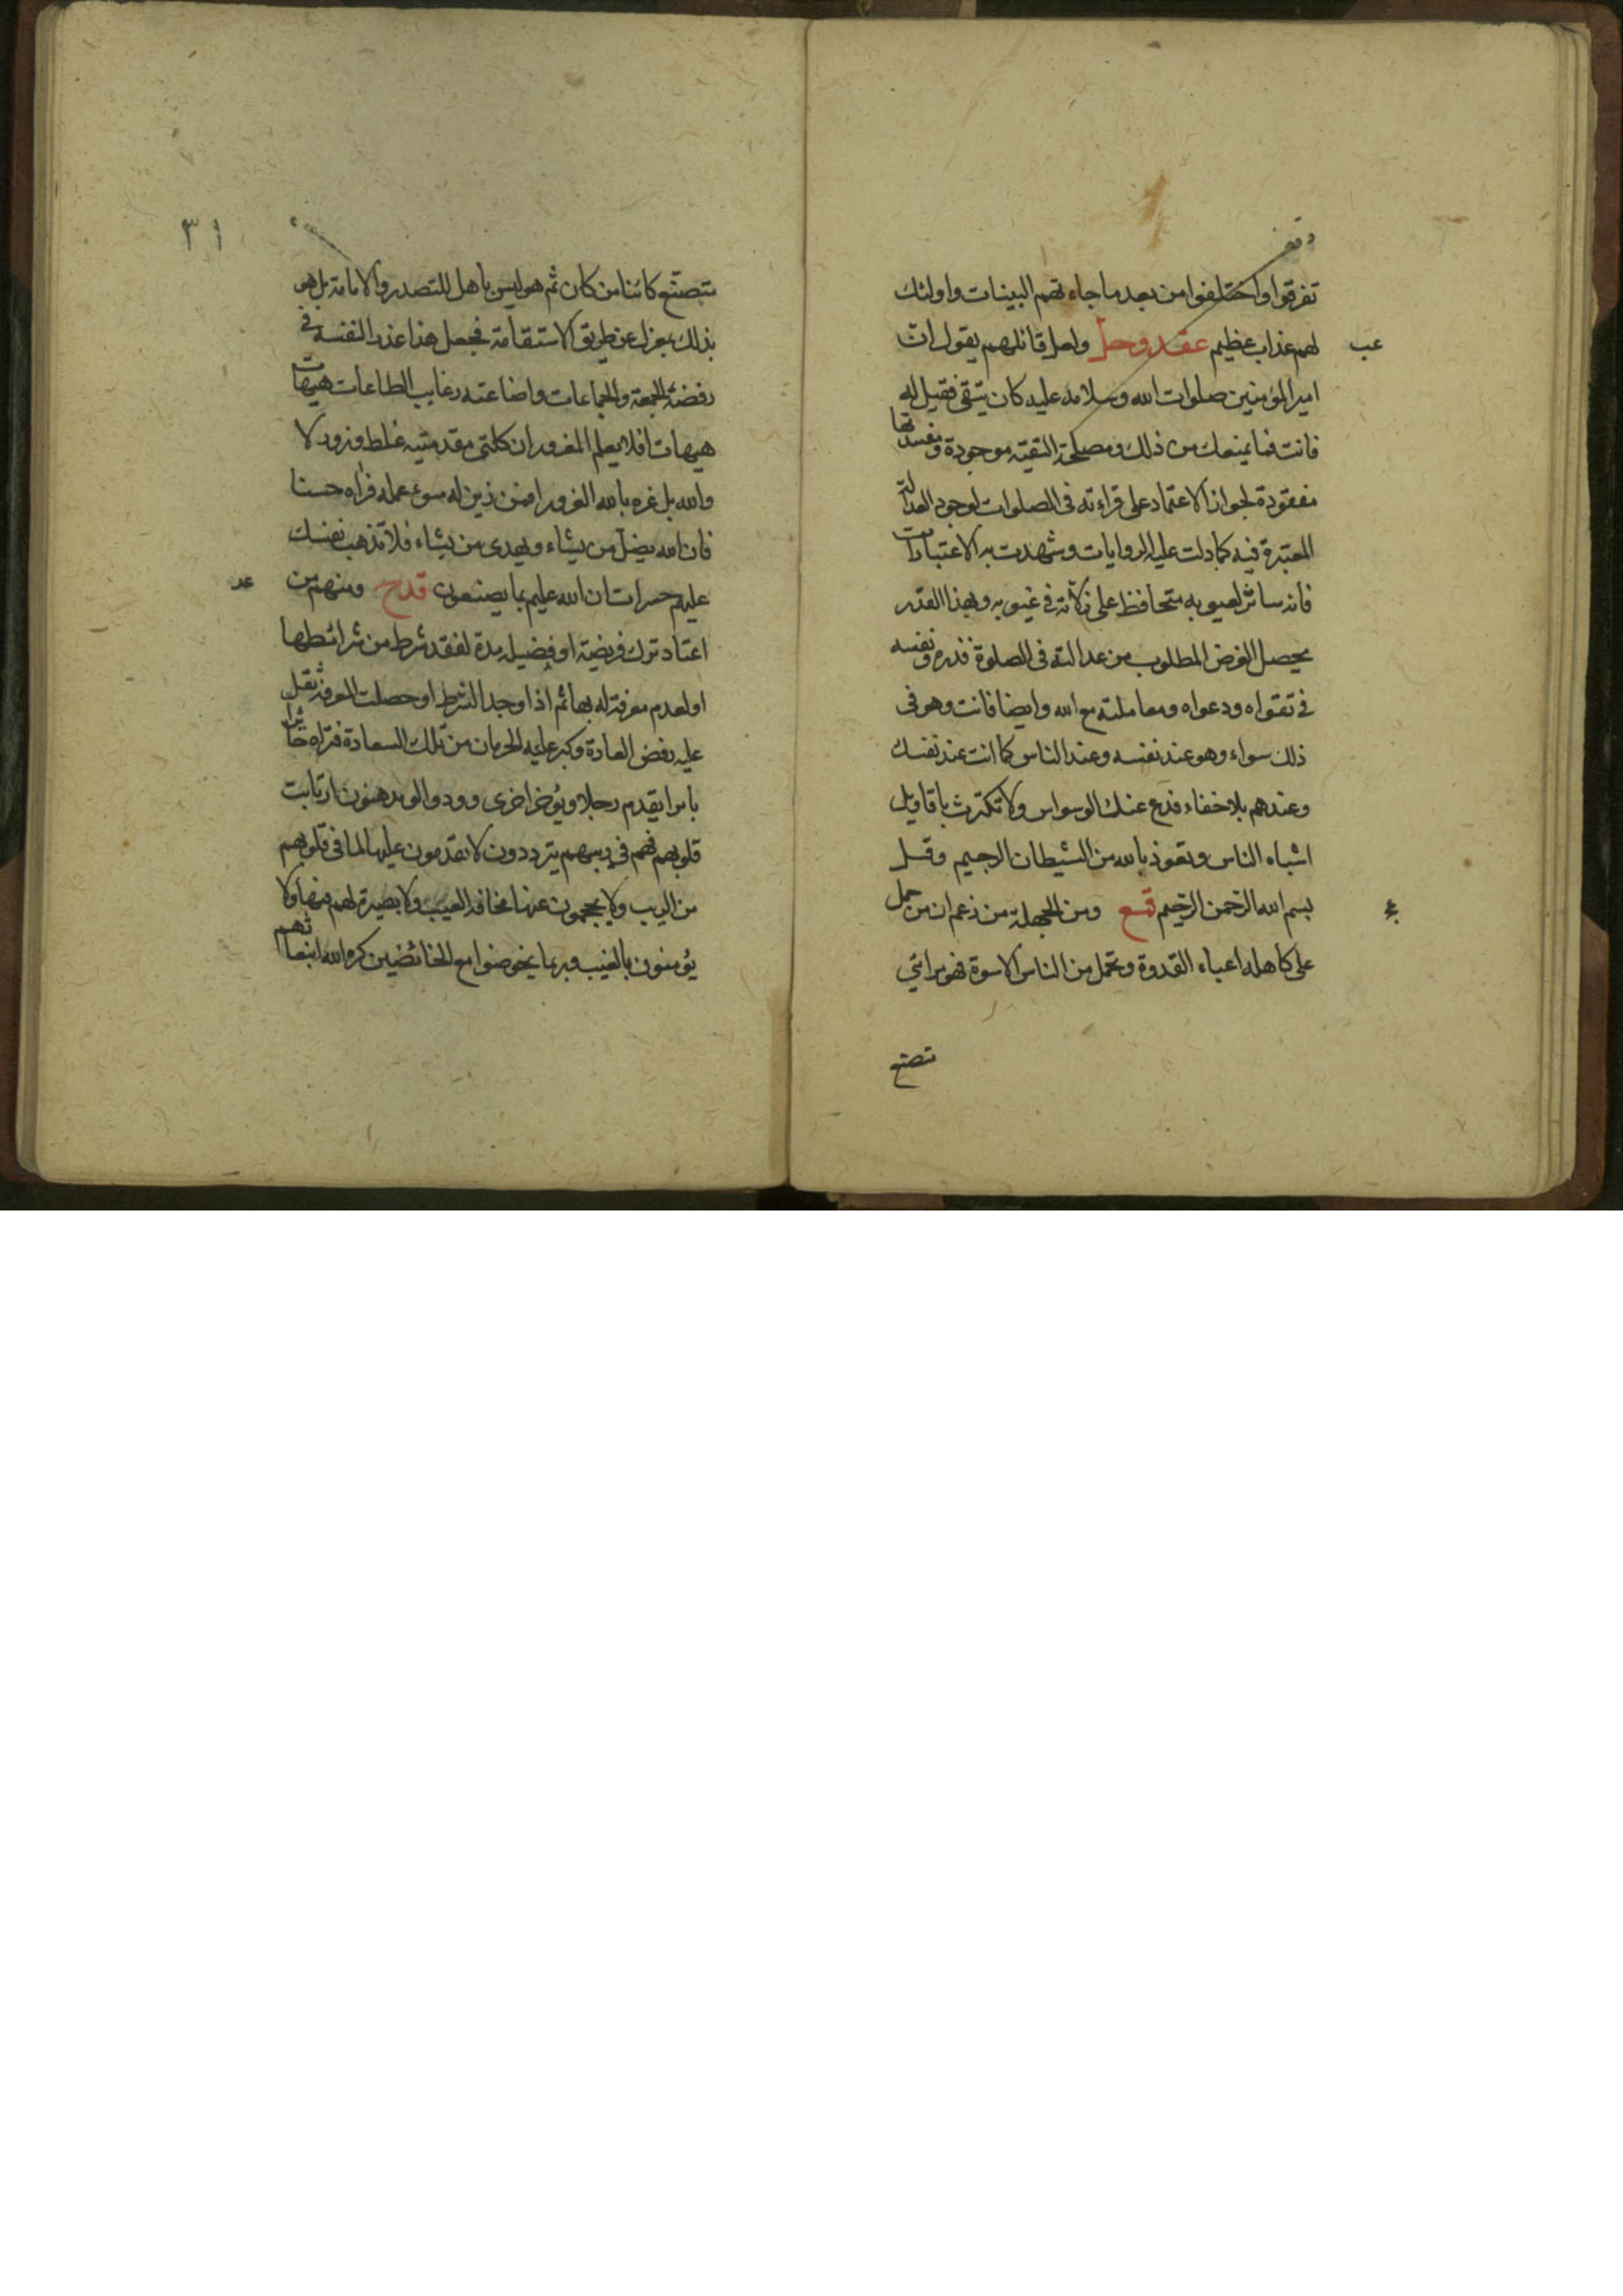 وقف
تفرقوا واختلفوا من بعد ما جاءتهم البينات واولئك
لهم عذاب عظيم عقد وحل ولعل قائلهم يقول ان
عب
امير المؤمنين صلوات الله وسلامه عليه كان يتقى فقيل له
فانت فما يمنعك من ذلك ومصلحة التقية موجودة ومفسدتها
مفقودة لجواز الاعتماد على قراءته فى الصلوات لوجود العدالة
المعتبرة فيه كما دلت عليه الروايات وشهدت به الاعتبارات
فانه ساتر لعيوبه متحافظ على زلاته فى غيوبه وبهذا القدر
يحصل الغرض المطلوب من عدالته فى الصلوة فذره ونفسه
فى تقواه ودعواه ومعاملته مع الله وايضا فانت وهو فى
ذلك سواء وهو عند نفسه وعند الناس كما انت عند نفسك
وعندهم بلا خفاء فدع عنك الوسواس ولا تكترث باقاويل
اشباه الناس وتعوذ بالله من الشيطان الرجيم وقل
بسم الله الرحمن الرحيم قمع ومن الجهلة من زعم ان من حمل
على كاهله اعباء القدوة وتحمل من الناس الاسوة فهو مرائى
تصنع
٣١
متصنع كائنا من كان ثم هو ليس باهل للتصدر والامامة بل هو
بذلك بمعزل عن طريق الاستقامة فجعل هذا عذرا لنفسه فى
رفضه الجمعة والجماعات واضاعته رغايب الطاعات هيهات
هيهات افلا يعلم المغرور ان كلتى مقدمتيه غلط وزور لا
والله بل غره بالله الغرور افمن زين له سوء عمله فراه حسنا
فان الله يضل من يشاء ويهدى من يشاء فلا تذهب نفسك
عليهم حسرات ان الله عليم بما يصنعون قدح ومنهم من
عد
اعتاد ترك فريضة او فضيلة مدة لفقد شرط من شرائطها
او لعدم معرفة له بها ثم اذا وجد الشرط او حصلت المعرفة ثقل
عليه رفض العادة وكبر عليه الحرمان من تلك السعادة فتراه حائرا
بائرا يقدم رجلا ويؤخر اخرى وودوا لو يدهنون ارتابت
قلوبهم فهم فى ريبهم يترددون لا يقدمون عليها لما فى قلوبهم
من الريب ولا يحجمون عنها مخافة العيب ولا بصيرة لهم فيها ولا
يؤمنون بالغيب وربما يخوضوا مع الخائضين كره الله انبعاثهم